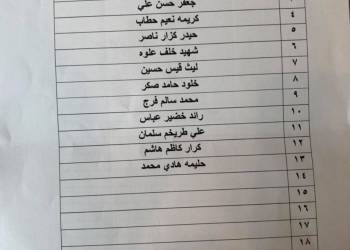 جعفر حسن علي
٤ كريمه نعيم حطاب
٥ حيدر كزار ناصر
٦ شهيد خلف علوه
٧ ليث قيس حسين
٨ خلود حامد صكر
٩ محمد سالم فرج
١٠ رائد خضير عباس
١١ علي طريخم سلمان
١٢ كرار كاظم هاشم
١٣ حليمه هادي محمد
١٤
١٥
١٦
١٧
١٨